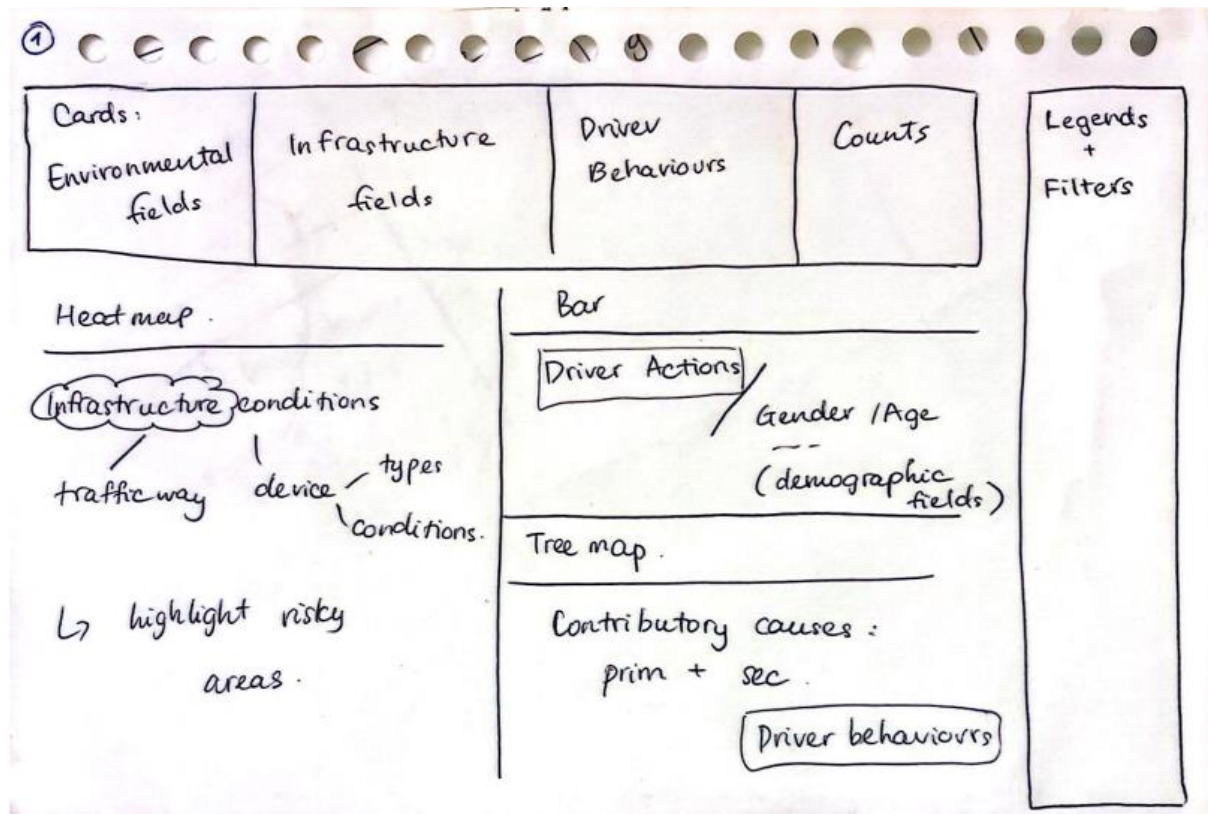 1
Cards:
Environmental
fields
Infrastructure
fields
Driver
Behaviours
Counts
Legends
+
Filters
Heatmap.
Infrastructure conditions
trafficway device types
conditions.
↳ highlight risky
areas.
Bar
Driver Actions
Gender / Age
(demographic
fields)
Tree map.
Contributory causes:
prim + sec.
Driver behaviours